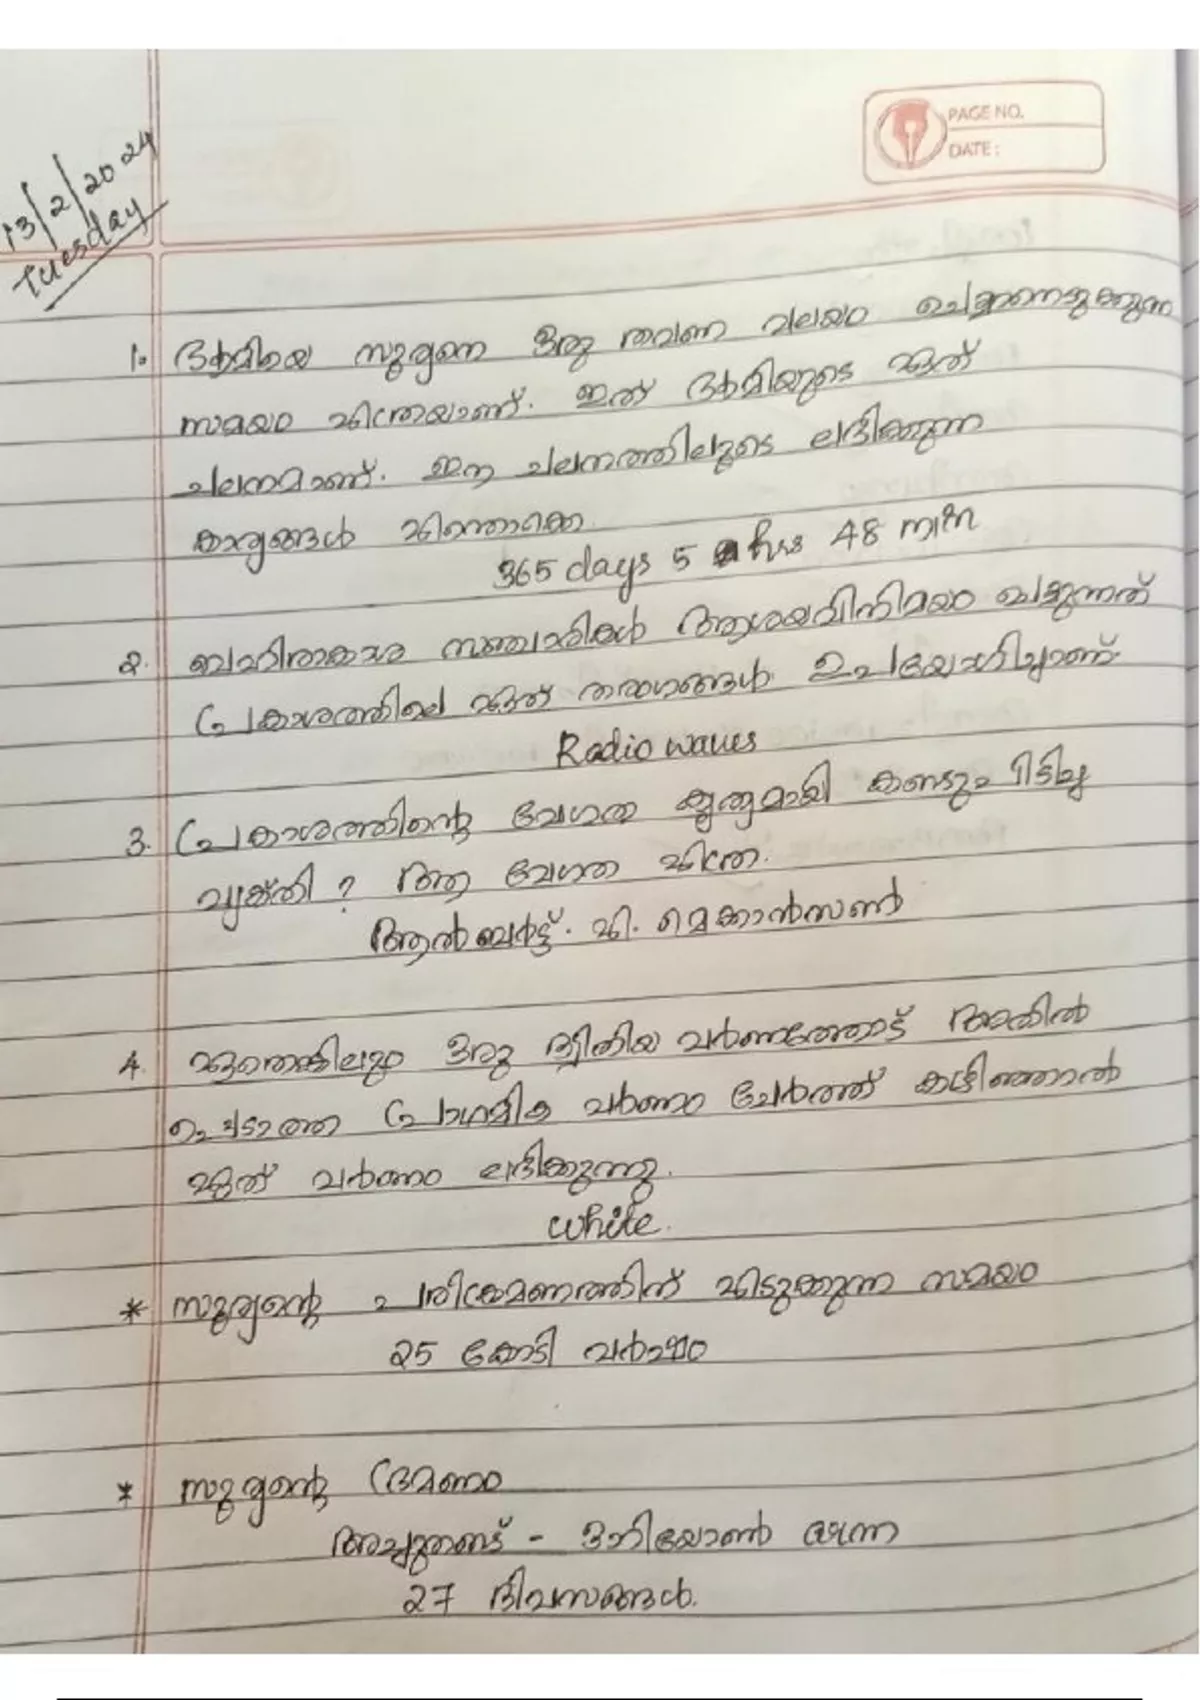 PAGE NO.
DATE:
13/2/2024
Tuesday
1. ഭൂമിയെ സൂര്യനെ ഒരു തവണ വലയം ചെയ്യാനെടുക്കുന്ന
സമയം എത്രയാണ്. ഇത് ഭൂമിയുടെ ഏത്
ചലനമാണ്. ഈ ചലനത്തിലൂടെ ലഭിക്കുന്ന
കാര്യങ്ങൾ എന്തൊക്കെ
365 days 5 hrs 48 min
2. ബഹിരാകാശ സഞ്ചാരികൾ ആശയവിനിമയം ചെയ്യുന്നത്
പ്രകാശത്തിലെ ഏത് തരംഗങ്ങൾ ഉപയോഗിച്ചാണ്.
Radio waves
3. പ്രകാശത്തിന്റെ വേഗത കൃത്യമായി കണ്ടുപിടിച്ച
വ്യക്തി? ആ വേഗത എത്ര.
ആൽബർട്ട്. എ. മെക്കാൻസൺ
4. ഏതെങ്കിലും ഒരു ദ്വിതീയ വർണത്തോട് അതിൽ
പെടാത്ത പ്രാഥമിക വർണം ചേർത്ത് കഴിഞ്ഞാൽ
ഏത് വർണം ലഭിക്കുന്നു.
white.
* സൂര്യന്റെ പരിക്രമണത്തിന് എടുക്കുന്ന സമയം
25 കോടി വർഷം
* സൂര്യന്റെ ഭ്രമണം
അച്ചുതണ്ട് -
27 ദിവസങ്ങൾ.